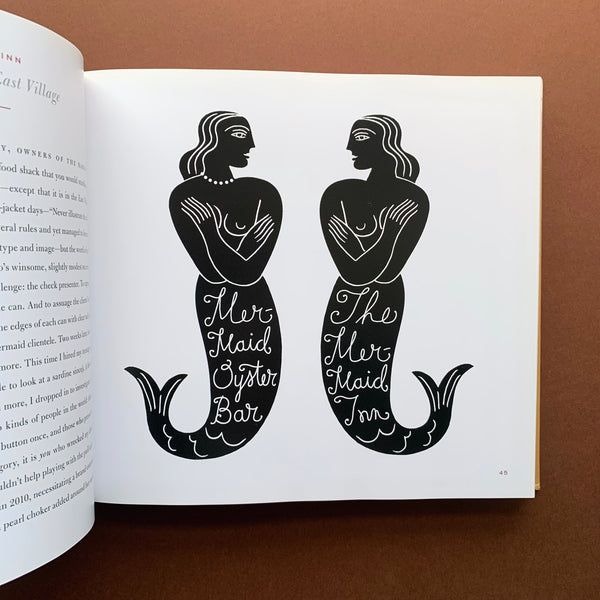 INN
East Village
Y, OWNERS OF THE
food shack that you would
—except that it is in the East
-jacket days—“Never illustrate
eral rules and yet managed to
type and image—but the
o’s winsome, slightly modest
llenge: the check presenter. To
e can. And to assuage the
he edges of each can with clear
ermaid clientele. Two weeks later
more. This time I hired my
le to look at a sardine since), I
more, I dropped in to investigate
o kinds of people in the world
button once, and those who
gory, it is you who wrecked my
uldn’t help playing with the
in 2010, necessitating a brand
pearl choker added around
Mer-
Maid
Oyster
Bar
The
Mer-
Maid
Inn
45